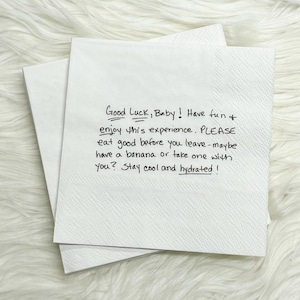 Good Luck, Baby! Have fun +
enjoy this experience. PLEASE
eat good before you leave - maybe
have a banana or take one with
you? Stay cool and hydrated!